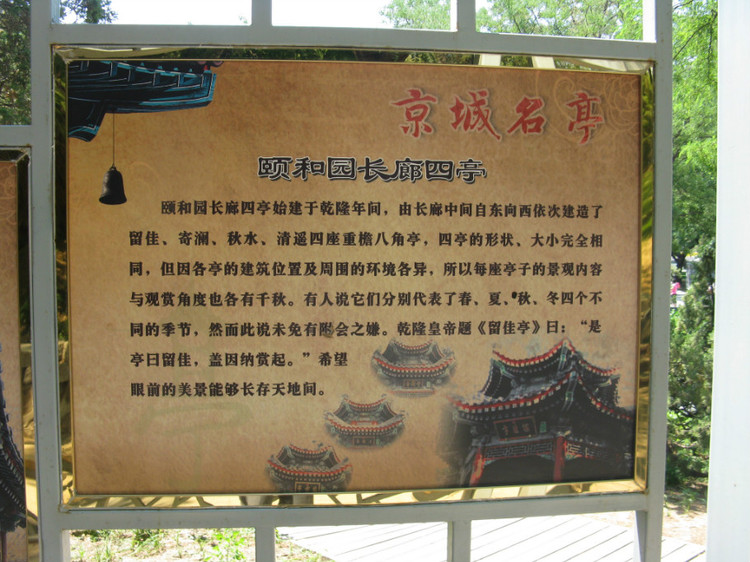 京城名亭
颐和园长廊四亭
颐和园长廊四亭始建于乾隆年间，由长廊中间自东向西依次建造了
留佳、寄澜、秋水、清遥四座重檐八角亭，四亭的形状、大小完全相
同，但因各亭的建筑位置及周围的环境各异，所以每座亭子的景观内容
与观赏角度也各有千秋。有人说它们分别代表了春、夏、秋、冬四个不
同的季节，然而此说未免有附会之嫌。乾隆皇帝题《留佳亭》曰：“是
亭曰留佳，盖因纳赏起。”希望
眼前的美景能够长存天地间。